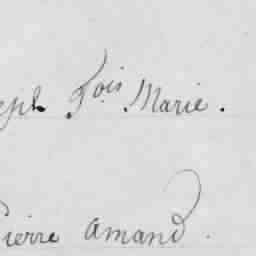 eph fois Marie.
Pierre amand.